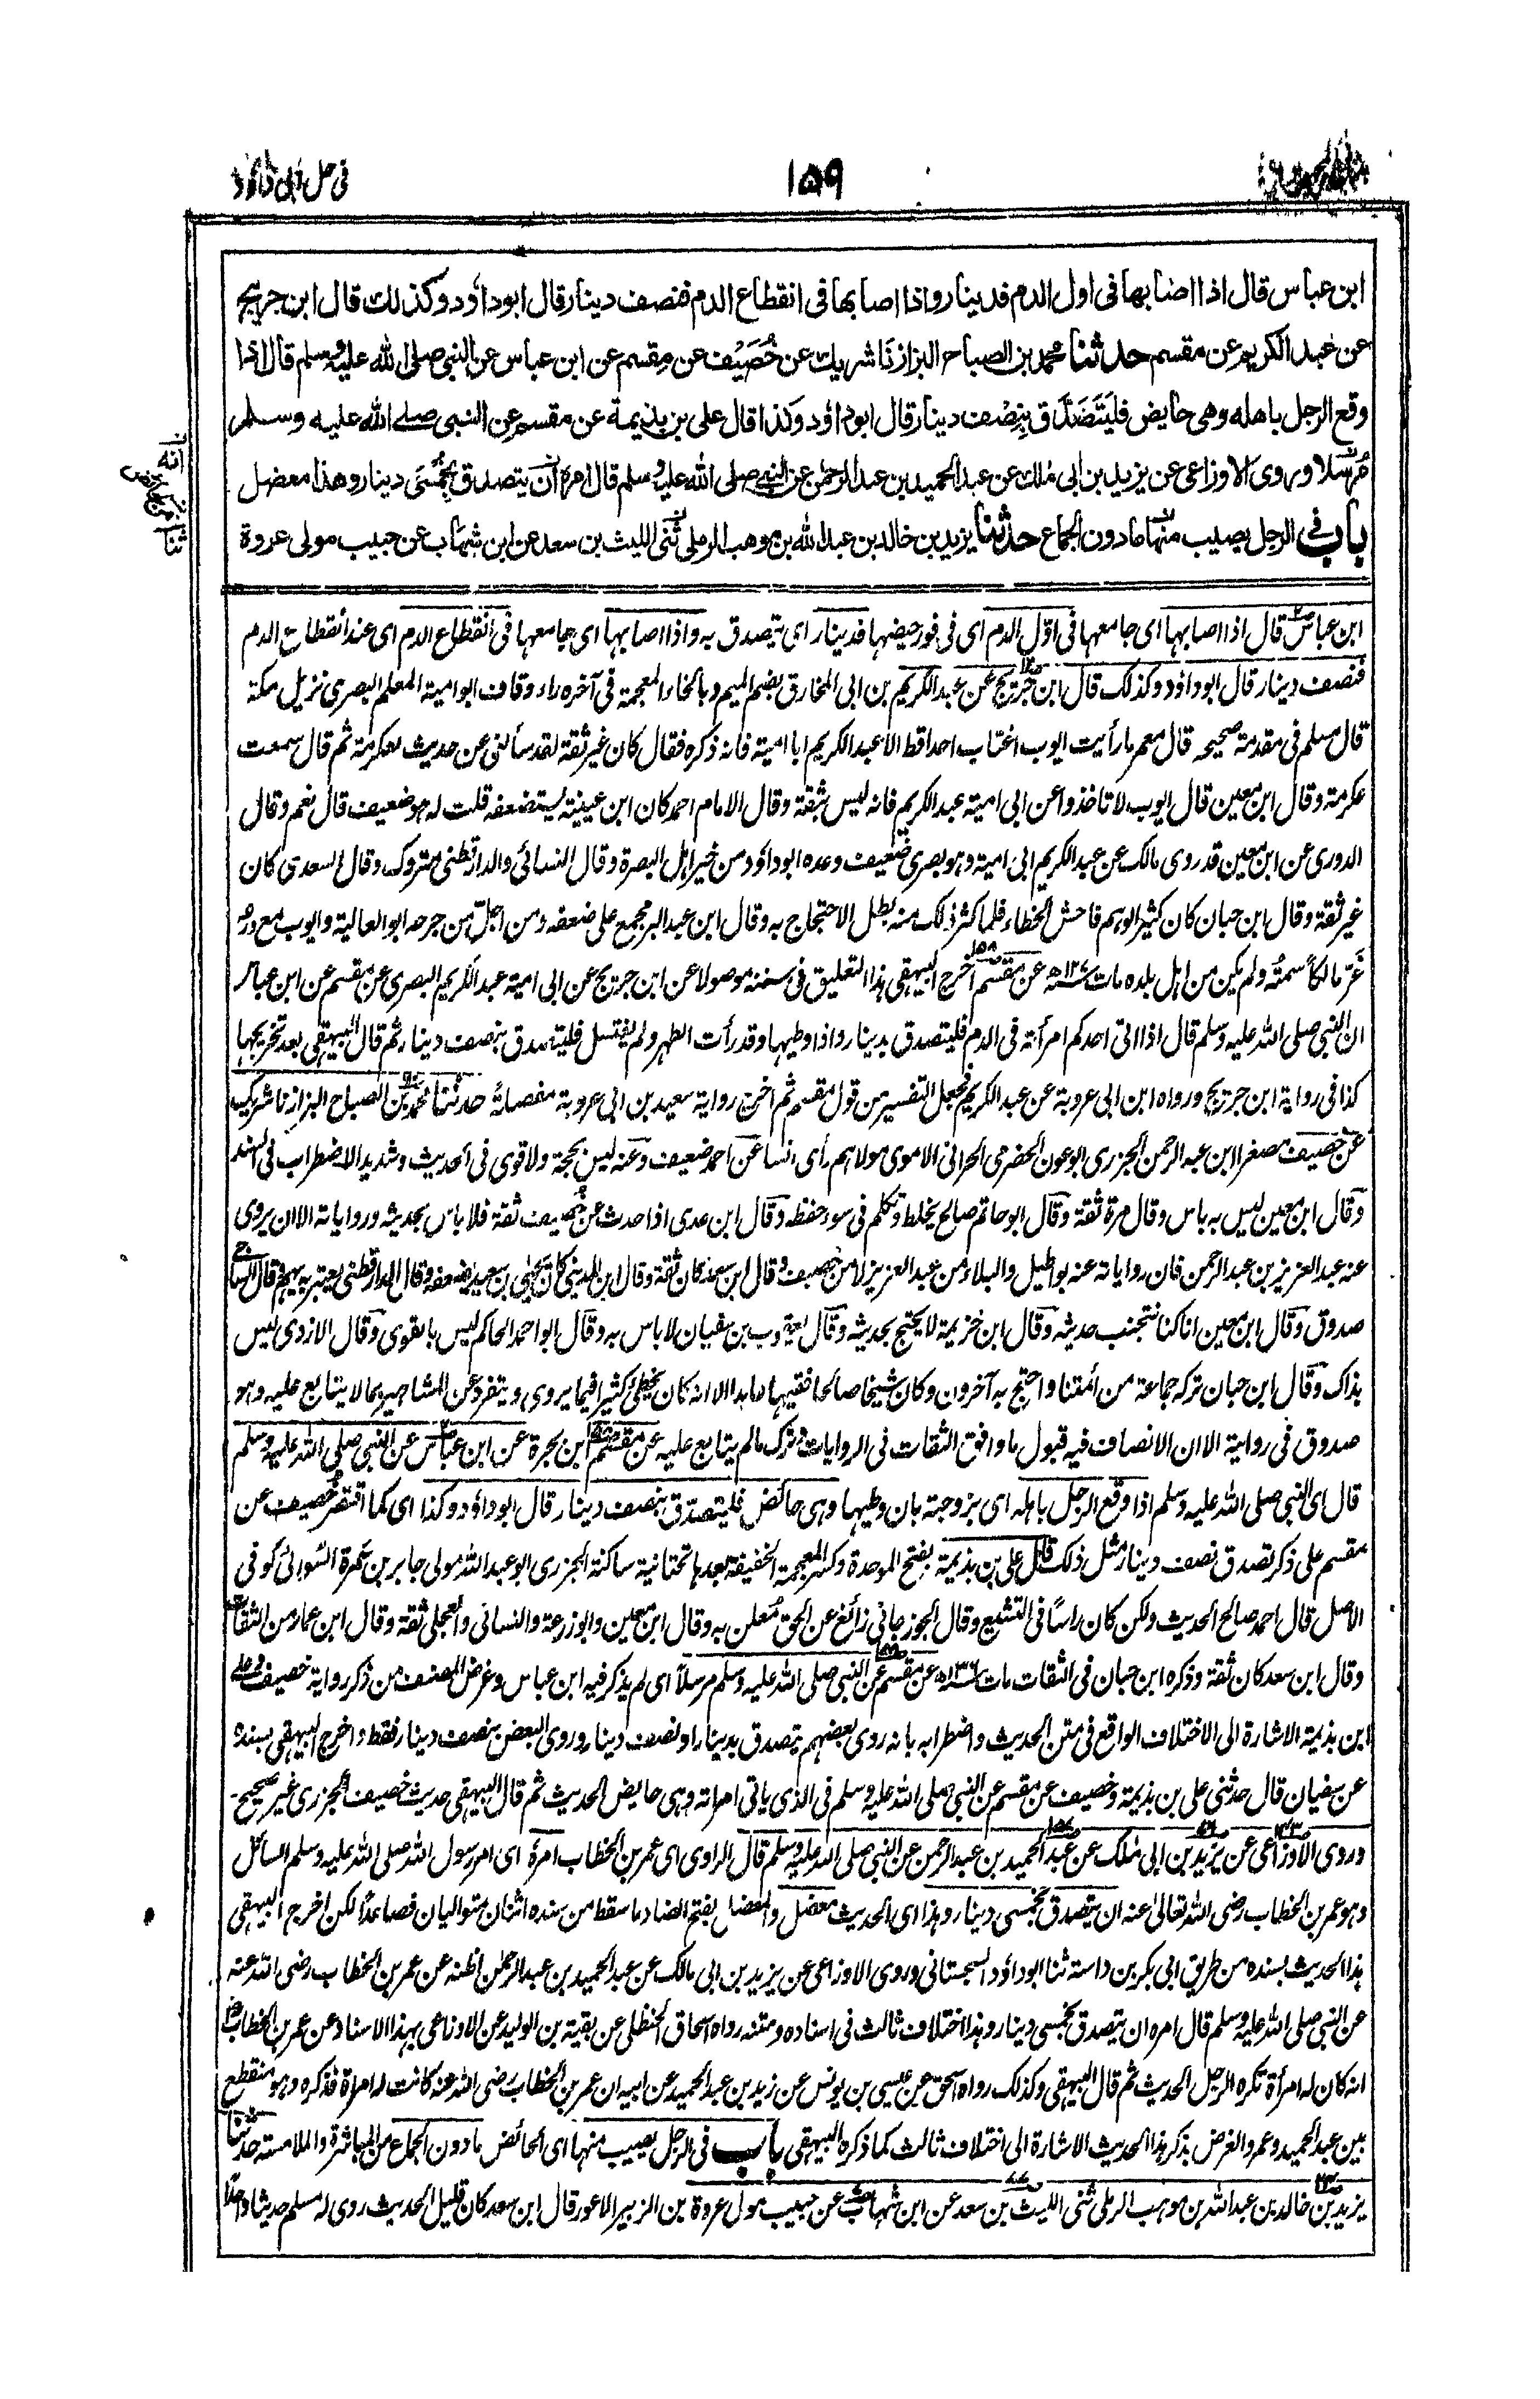 في حل ابي داؤد
١٥٩
ابن عباس قال اذا اصابها في اول الدم فدينار واذا اصابها في انقطاع الدم فنصف دينار قال ابوداؤد وكذلك قال ابن جريج
عن عبد الكريم عن مقسم حدثنا محمد بن الصباح البزاز نا شريك عن خُصَيْف عن مِقسم عن ابن عباس عن النبي صلى الله عليه وسلم قال اذا
وقع الرجل باهله وهي حايض فليَتَصَدَّق بِنِصْف دينار قال ابوداؤد وكذا قال علي بن بذيمة عن مقسم عن النبي صلى الله عليه وسلم
مُرسَلا وروى الاوزاعي عن يزيد بن ابي مٰلك عن عبد الحميد بن عبد الرحمٰن عن النبي صلى الله عليه وسلم قال امره ان يتصدق بخُمُسَي دينار وهذا معضل
باب في الرجل يصيب منها ما دون الجماع حدثنا يزيد بن خالد بن عبد الله بن موهب الرملي ثني الليث بن سعد عن ابن شهاب عن حبيب مولى عروة
انه
ثنا
ابن عباس قال اذا اصابها اي جامعها في اوّل الدم اي في فور حيضها فدينار اي يتصدق به واذا اصابها اي جامعها في انقطاع الدم اي عند انقطاع الدم
فنصف دينار قال ابوداؤد وكذلك قال ابن جريج عن عبد الكريم بن ابي المخارق بضم الميم وبالخاء المعجمة في آخره راء وقاف ابوامية المعلم البصري نزيل مكة
قال مسلم في مقدمة صحيحه قال معمر ما رأيت ايوب اغتاب احدا قط الا عبد الكريم ابا امية فانه ذكره فقال كان غير ثقة لقد سألني عن حديث لعكرمة ثم قال سمعت
عكرمة وقال ابن معين قال ايوب لا تاخذوا عن ابي امية عبد الكريم فانه ليس بثقة وقال الامام احمد كان ابن عيينة يستضعفه قلت له هو ضعيف قال نعم وقال
الدوري عن ابن معين قد روى مالك عن عبد الكريم ابي امية وهو بصري ضعيف وعده ابوداؤد من خير اهل البصرة وقال النسائي والدارقطني متروك وقال السعدي كان
غير ثقة وقال ابن حبان كان كثير الوهم فاحش الخطاء فلما كثر ذلك منه بطل الاحتجاج به وقال ابن عبد البر مجمع على ضعفه ومن اجلّ من جرحه ابو العالية وايوب مع ورعه
غرّ مالكا سمته ولم يكن من اهل بلده مات سنة ١٢٧ه عن مقسم اخرج البيهقي هذا التعليق في سننه موصولا عن ابن جريج عن ابي امية عبد الكريم البصري عن مقسم عن ابن عباس
ان النبي صلى الله عليه وسلم قال اذا اتى احدكم امرأته في الدم فليتصدق بدينار واذا وطيها وقد رأت الطهر ولم يغتسل فليتصدق بنصف دينار ثم قال البيهقي بعد تخريجها
كذا في رواية ابن جريج ورواه ابن ابي عروبة عن عبد الكريم فجعل التفسير من قول مقسم ثم اخرج رواية سعيد بن ابي عروبة مفصلة حدثنا محمد بن الصباح البزاز نا شريك
عن خصيف مصغرا ابن عبد الرحمن الجزري ابوعون الحضرمي الحراني الاموي مولاهم رأى انسا عن احمد ضعيف وعنه ليس بحجة ولا قوي في الحديث وشديد الاضطراب في المسند
وقال ابن معين ليس به باس وقال مرة ثقة وقال ابوحاتم صالح يخلط وتكلم في سوء حفظه وقال ابن عدي اذا حدث عن خصيف ثقة فلا باس بحديثه ورواياته الا ان يروي
عنه عبد العزيز بن عبد الرحمن فان رواياته عنه بواطيل والبلاء من عبد العزيز لا من خصيف وقال ابن سعد كان ثقة وقال ابن المديني كان يحيى بن سعيد يضعفه وقال الدارقطني يعتبر به يهم وقال الساجي
صدوق وقال ابن معين انا كنا نتجنب حديثه وقال ابن خزيمة لا يحتج بحديثه وقال يعقوب بن سفيان لا باس به وقال ابو احمد الحاكم ليس بالقوي وقال الازدي ليس
بذاك وقال ابن حبان تركه جماعة من أئمتنا واحتج به آخرون وكان شيخا صالحا فقيها عابدا الا انه كان يخطئ كثيرا فيما يروي ويتفرد عن المشاهير بما لا يتابع عليه وهو
صدوق في رواية الا ان الانصاف فيه قبول ما وافق الثقات في الروايات وترك ما لم يتابع عليه عن مقسم ابن بجرة عن ابن عباس عن النبي صلى الله عليه وسلم
قال اي النبي صلى الله عليه وسلم اذا وقع الرجل باهله اي بزوجته بان وطيها وهي حائض فليتصدّق بنصف دينار قال ابوداؤد وكذا اي كما اقتصر خصيف عن
مقسم على ذكر تصدق نصف دينار مثل ذلك قال علي بن بذيمة بفتح الموحدة وكسر المعجمة الخفيفة بعدها تحتانية ساكنة الجزري ابوعبد الله مولى جابر بن سمرة السوائي كوفي
الاصل قال احمد صالح الحديث ولكن كان راسًا في التشيع وقال الجوزجاني زائغ عن الحق مُعلن به وقال ابن معين وابوزرعة والنسائي والعجلي ثقة وقال ابن عمار من الثقات
وقال ابن سعد كان ثقة وذكره ابن حبان في الثقات مات سنة ١٣٦ه عن مقسم عن النبي صلى الله عليه وسلم مرسلا اي لم يذكر فيه ابن عباس وغرض المصنف من ذكر رواية خصيف وعلي
ابن بذيمة الاشارة الى الاختلاف الواقع في متن الحديث واضطرابه بانه روى بعضهم يتصدق بدينار او نصف دينار وروى البعض بنصف دينار فقط واخرج البيهقي بسنده
عن سفيان قال حدثني علي بن بذيمة وخصيف عن مقسم عن النبي صلى الله عليه وسلم في الذي ياتي امراته وهي حايض الحديث ثم قال البيهقي حديث خصيف الجزري غير صحيح
وروى الاوزاعي عن يزيد بن ابي مٰلك عن عبد الحميد بن عبد الرحمن عن النبي صلى الله عليه وسلم قال الراوي اي عمر بن الخطاب امره اي امر رسول الله صلى الله عليه وسلم السائل
وهو عمر بن الخطاب رضي الله تعالى عنه ان يتصدق بخمسي دينار وهذا اي الحديث معضل والمعضل بفتح الضاد ما سقط من سنده اثنان متواليان فصاعدًا لكن اخرج البيهقي
هذا الحديث بسنده من طريق ابي بكر بن داسته ثنا ابوداؤد السجستاني وروى الاوزاعي عن يزيد بن ابي مالك عن عبد الحميد بن عبد الرحمٰن اظنه عن عمر بن الخطاب رضي الله عنه
عن النبي صلى الله عليه وسلم قال امره ان يتصدق بخمسي دينار وهذا اختلاف ثالث في اسناده ومتنه رواه اسحاق الحنظلي عن بقية بن الوليد عن الاوزاعي بهذا الاسناد عن عمر بن الخطاب
انه كان له امرأة تكره الرجل الحديث ثم قال البيهقي وكذلك رواه اسحق عن عيسى بن يونس عن زيد بن عبد الحميد عن ابيه ان عمر بن الخطاب رضي الله عنه كانت له امراة فذكره وهو منقطع
بين عبد الحميد وعمر والغرض بذكر هذا الحديث الاشارة الى اختلاف ثالث كما ذكره البيهقي باب في الرجل يصيب منها اي الحائض ما دون الجماع من المباشرة والملامسة حدثنا
يزيد بن خالد بن عبد الله بن موهب الرملي ثني الليث بن سعد عن ابن شهاب عن حبيب مولى عروة بن الزبير الاعور قال ابن سعد كان قليل الحديث روى له مسلم حديثا واحدًا